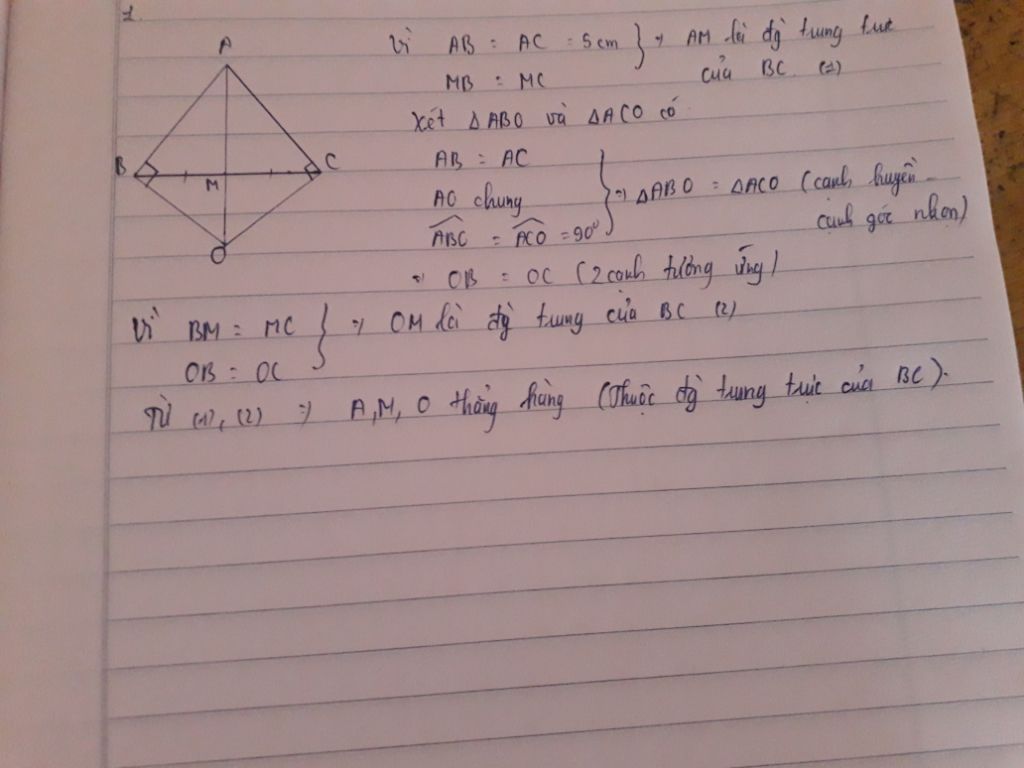 1.
A
B
C
M
O
Vì AB = AC = 5cm } => AM là đg trung trực
MB = MC của BC (1)
Xét △ABO và △ACO có
AB = AC
AO chung } => △ABO = △ACO (cạnh huyền -
ABC = ACO = 90° cạnh góc nhọn)
=> OB = OC (2 cạnh tương ứng)
Vì BM = MC } => OM là đg trung của BC (2)
OB = OC
Từ (1), (2) => A, M, O thẳng hàng (Thuộc đg trung trực của BC).